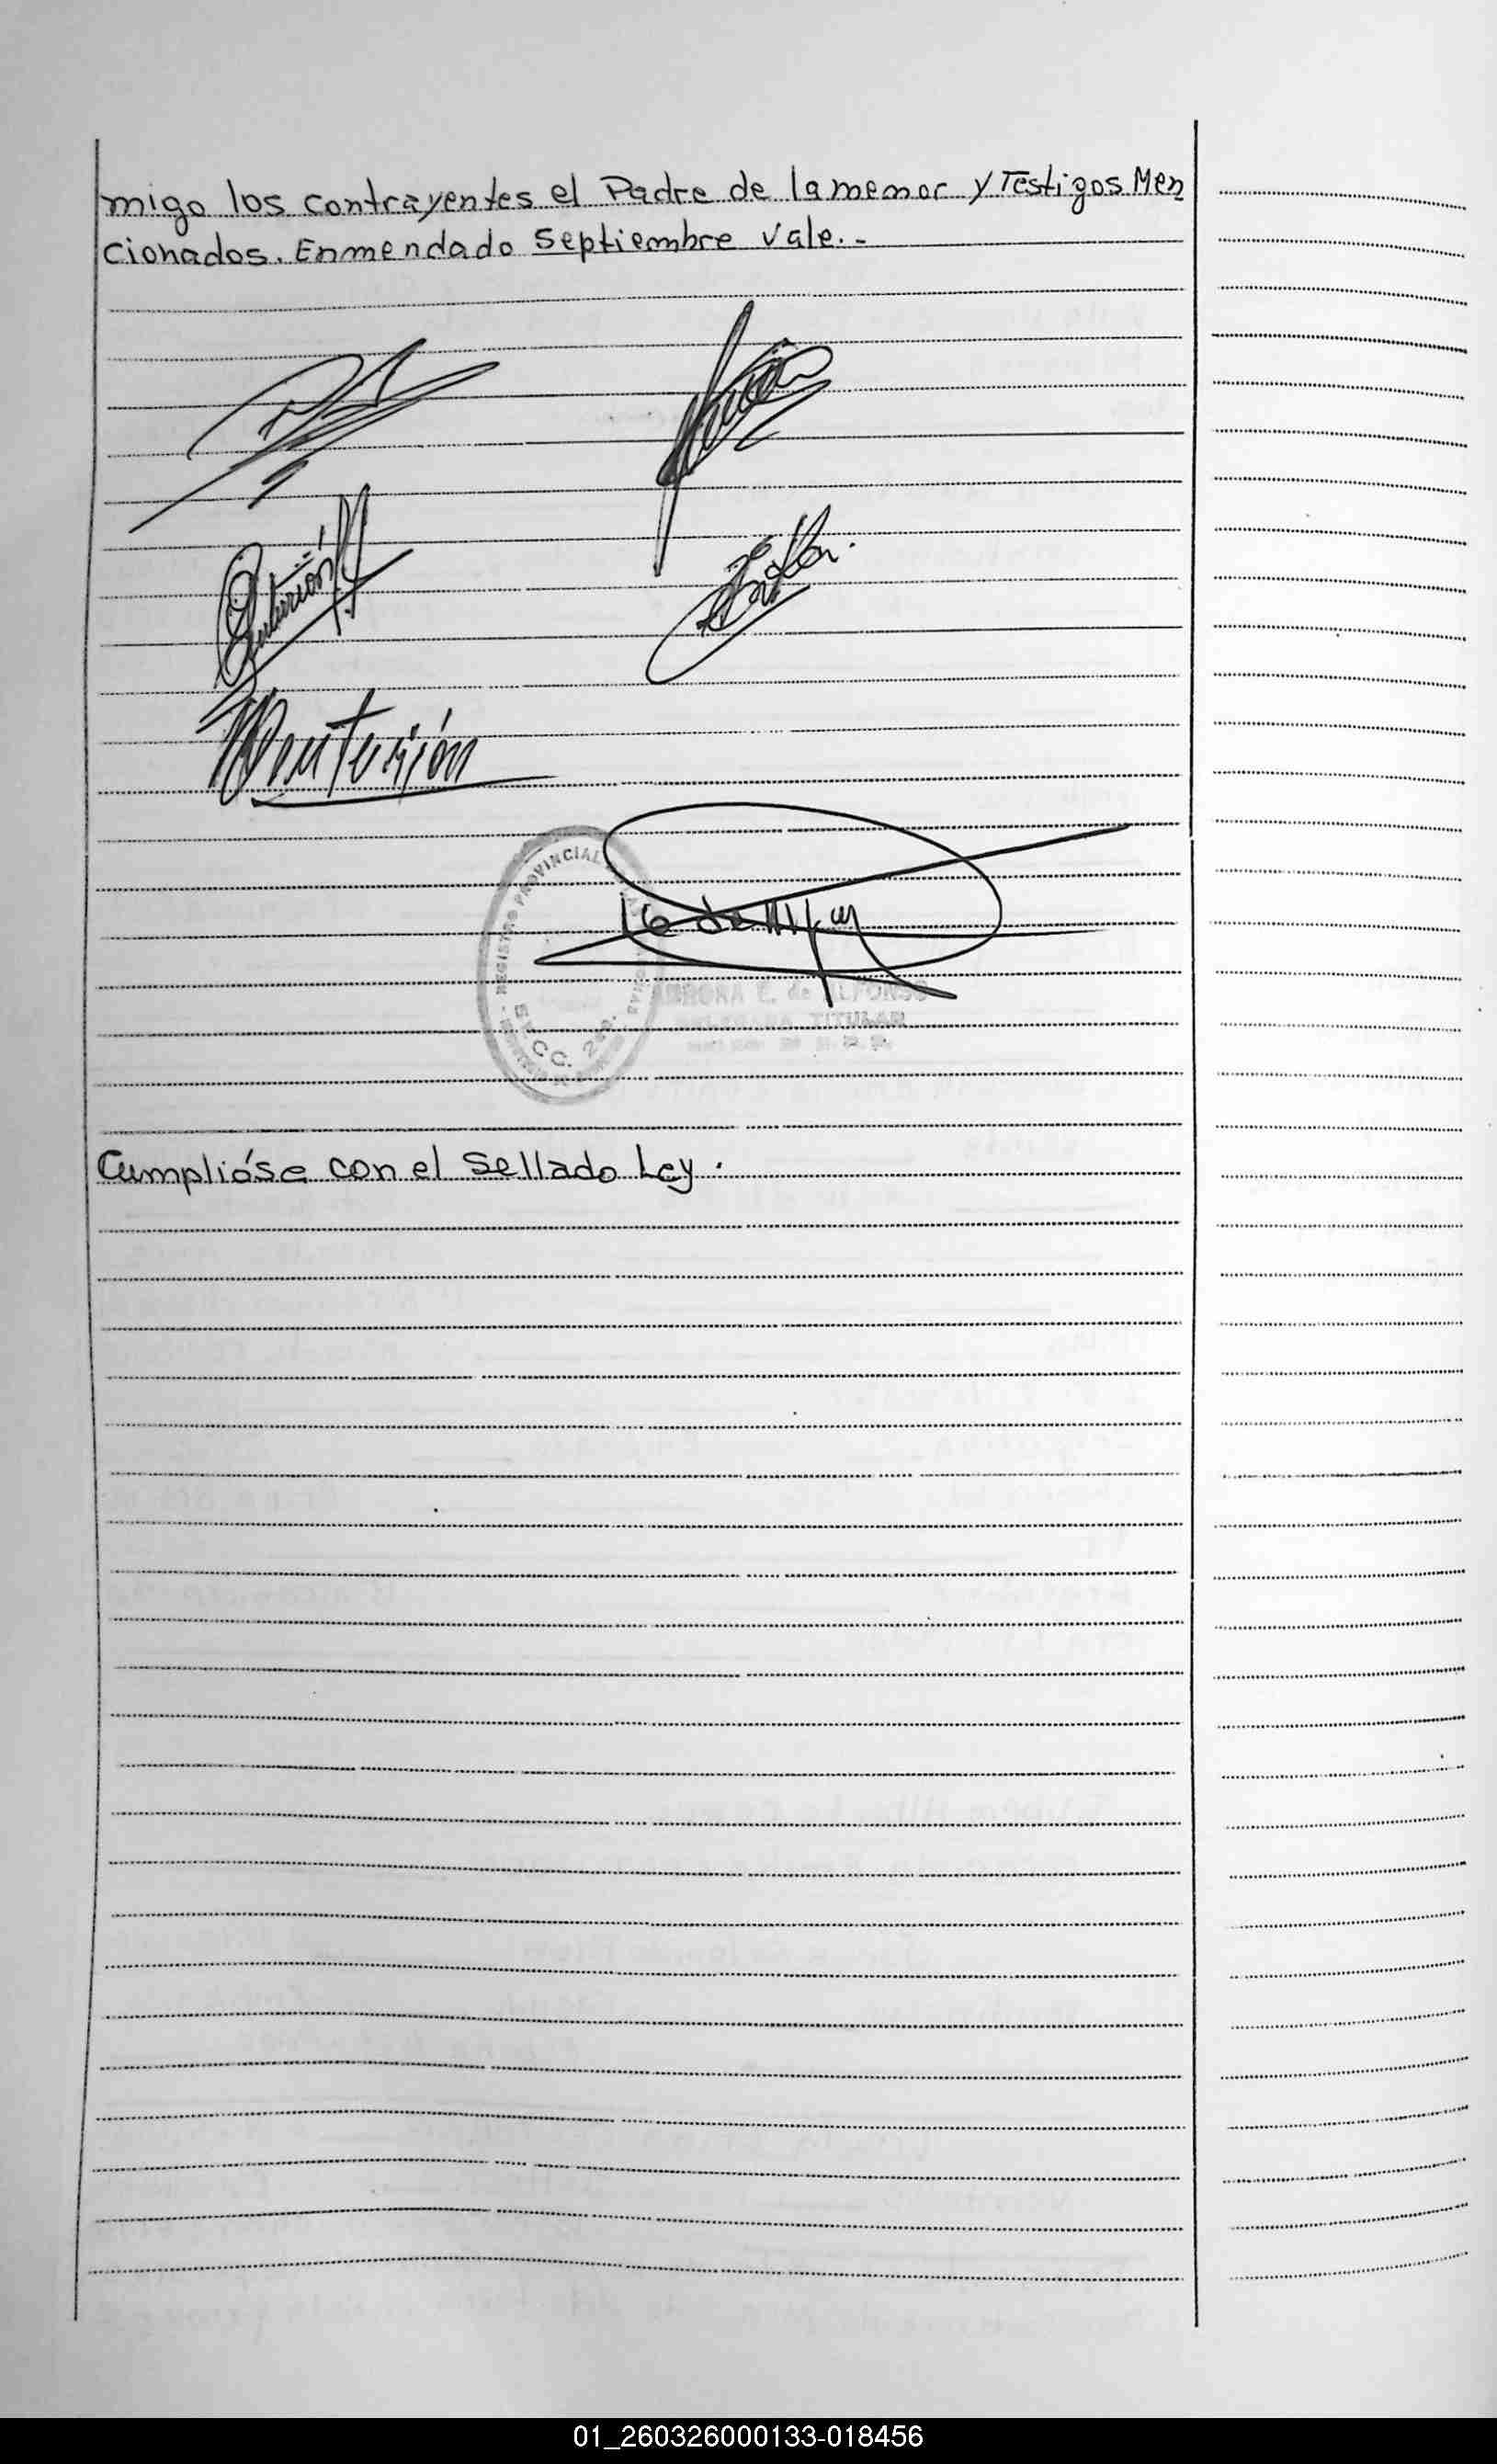 migo los contrayentes el Padre de la menor y Testigos Men
cionados. Enmendado Septiembre Vale.-
Centurión
REGISTRO PROVINCIAL
SECC. 2da.
AURORA E. de ALFONSO
DELEGADA TITULAR
Cumplióse con el Sellado Ley.
01_260326000133-018456